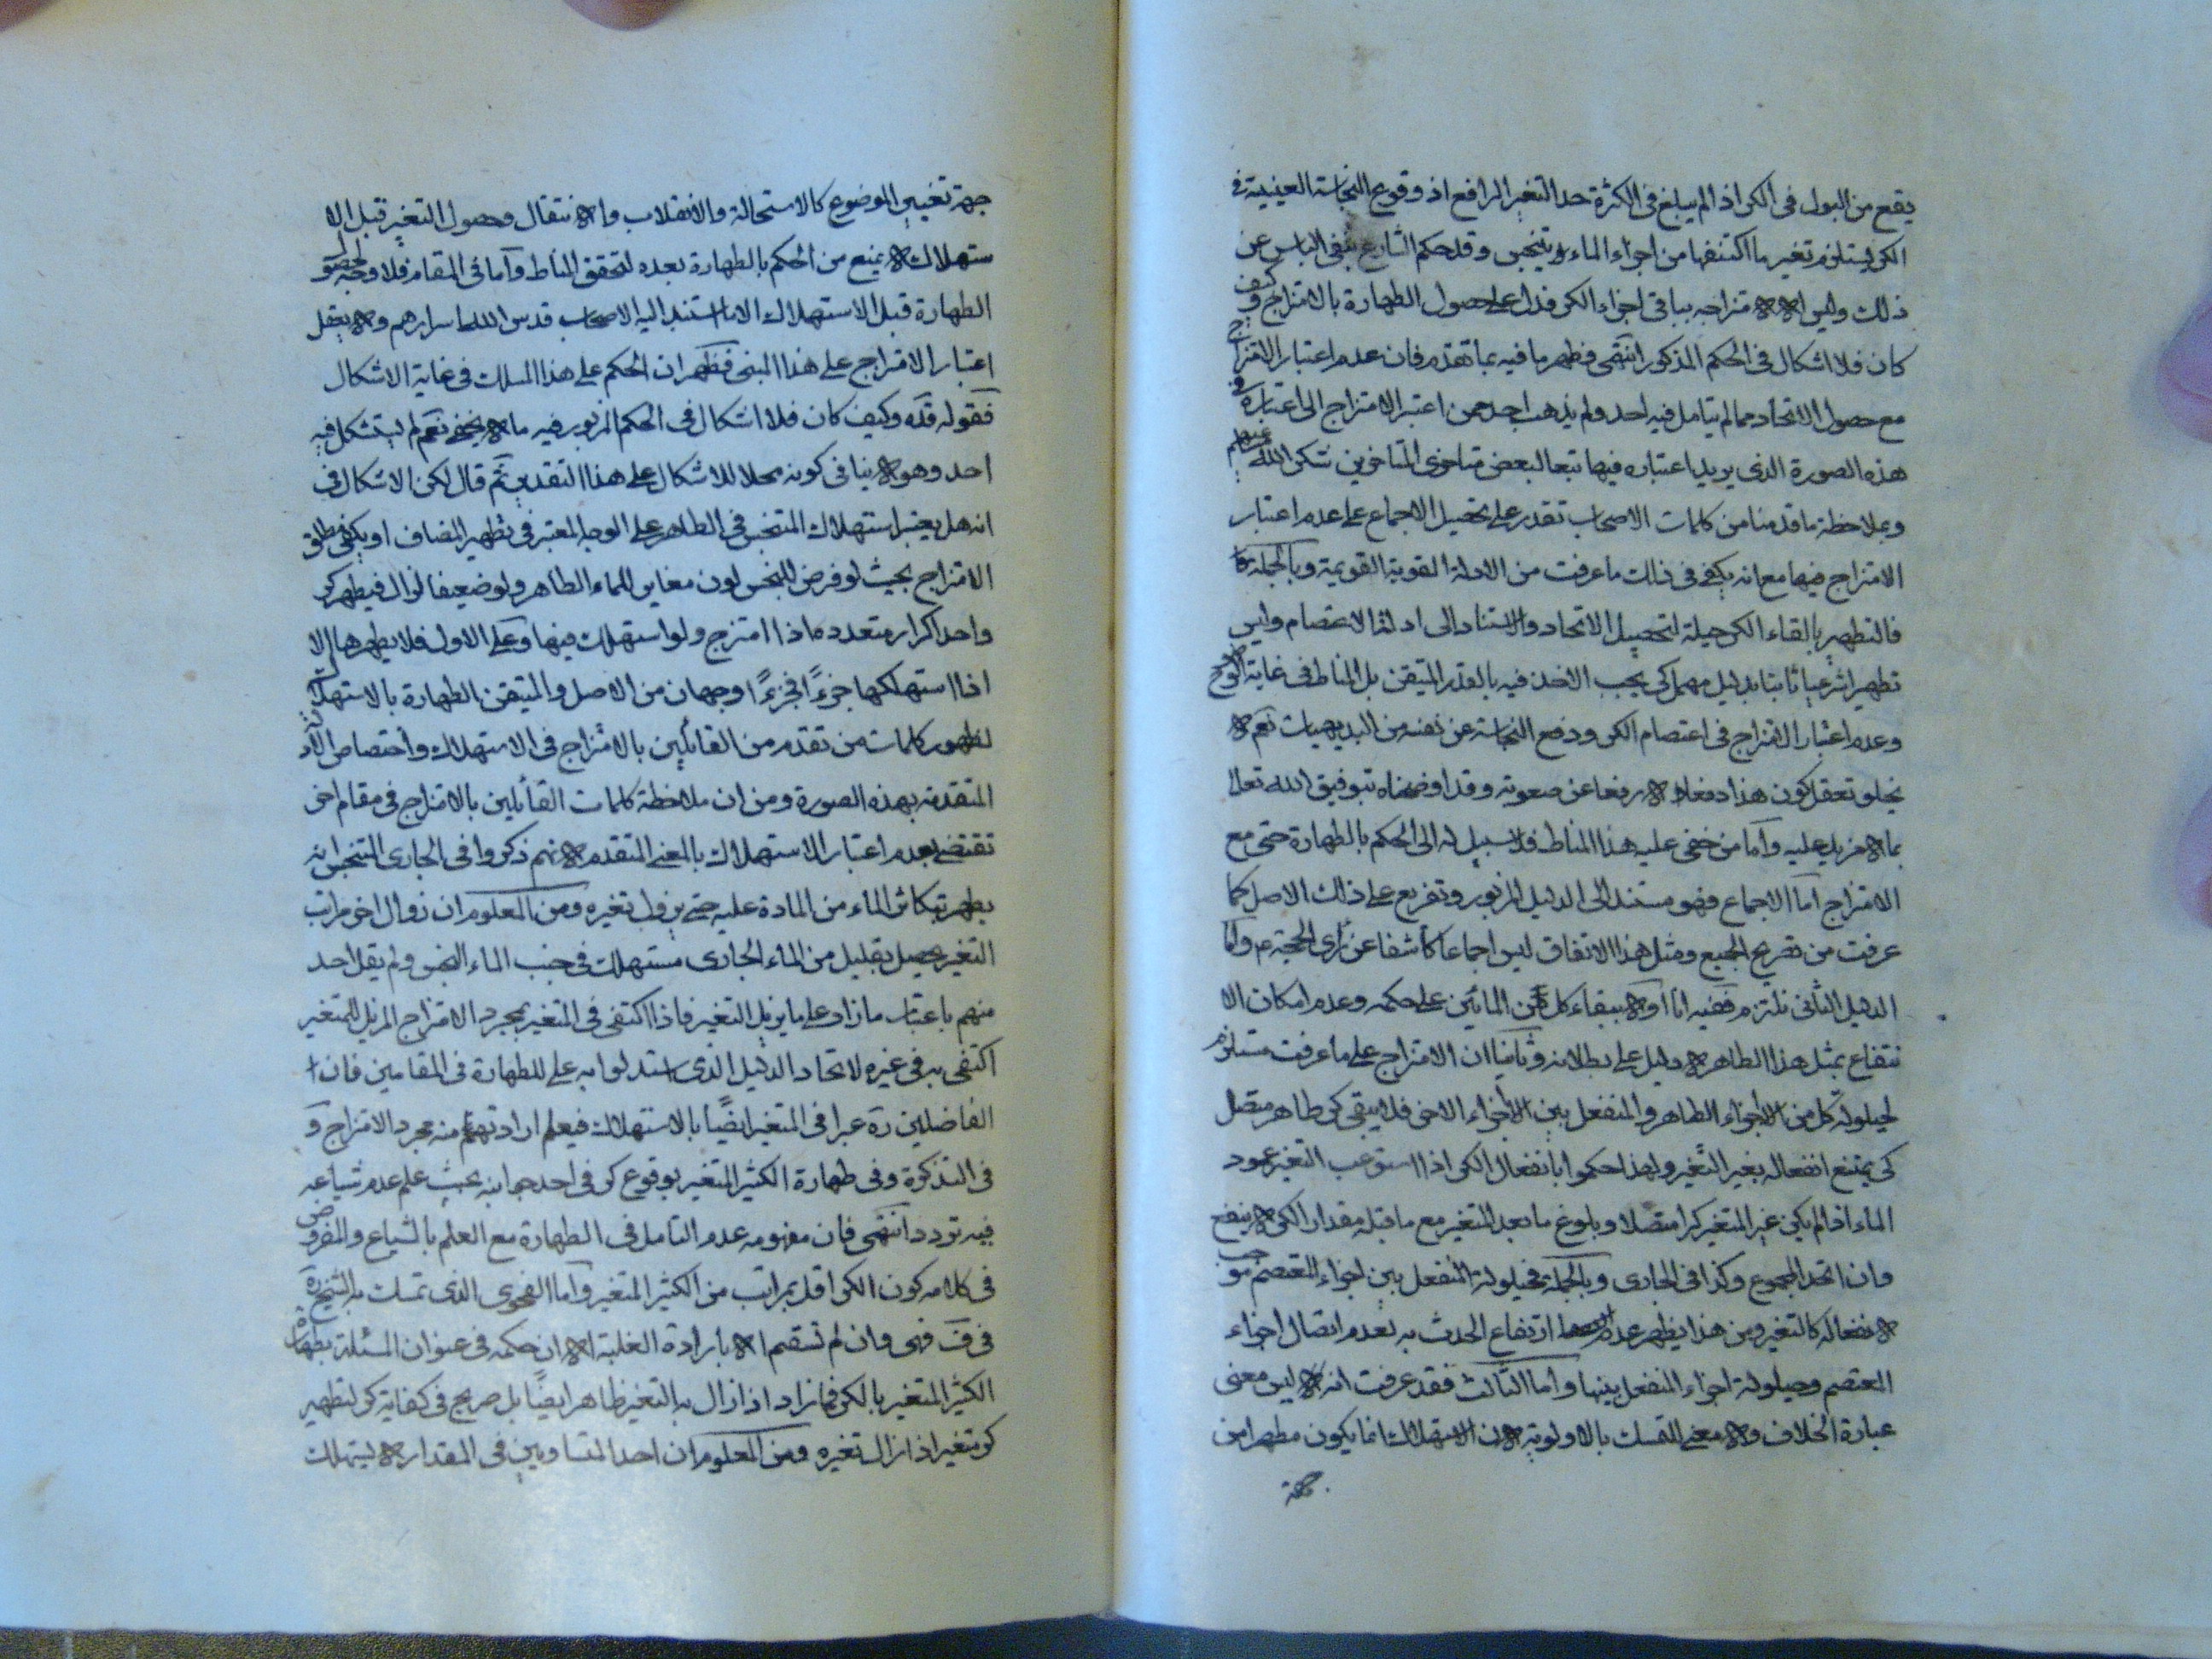 يقع من البول فى الكر اذا لم يبلغ فى الكثرة حد التغير الرافع اذ وقوع النجاسة العينية فى
الكر يستلزم تغير ما اكتنفها من اجزاء الماء فيتنجس وقد حكم الشارع بنفى الباس عن
ذلك وليس الا لامتزاجه بباقى اجزاء الكر فدل على حصول الطهارة بالامتزاج وكيف
كان فلا اشكال فى الحكم المذكور انتهى فظهر ما فيه بما تقدم فان عدم اعتبار الامتزاج
مع حصول الاتحاد مما لم يتامل فيه احد ولم يذهب احد ممن اعتبر الامتزاج الى اعتباره فى
هذه الصورة الذى يريد اعتباره فيها تبعا لبعض متاخرى المتاخرين شكر الله سعيهم
وبملاحظة ما قدمنا من كلمات الاصحاب تقدر على تحصيل الاجماع على عدم اعتبار
الامتزاج فيها مع انه يكفى فى ذلك ما عرفت من الادلة القوية القويمة وبالجملة
فالتطهير بالقاء الكر حيلة لتحصيل الاتحاد والاستناد الى ادلة الاعتصام وليس
تطهيرا شرعيا ثابتا بدليل مهمل كى يجب الاخذ فيه بالقدر المتيقن بل المناط فى غاية الوضوح
وعدم اعتبار الامتزاج فى اعتصام الكر ودفع النجاسة عن نفسه من البديهيات نعم لا
يخلو تعقل كون هذا دفعا لا رفعا عن صعوبة وقد اوضحناه بتوفيق الله تعالى
بما لا مزيد عليه واما من خفى عليه هذا المناط فلا سبيل له الى الحكم بالطهارة حتى مع
الامتزاج اما الاجماع فهو مستند الى الدليل المزبور وتفريع على ذلك الاصل كما
عرفت من تصريح الجميع ومثل هذا الاتفاق ليس اجماعا كاشفا عن راى الحجة ع واما
الدليل الثانى فلتزم ففيه اما اولا ببقاء كل من المائين على حكمه وعدم امكان الا
نتفاع بمثل هذا الطاهر لا دليل على بطلانه وثانيا ان الامتزاج على ما عرفت مستلزم
لحيلولة كل من الاجزاء الطاهر والمنفعل بين الاجزاء الاخر فلا يبقى كر طاهر متصل
كى يمتنع انفعاله بغير التغير ولهذا حكموا بانفعال الكر اذا استوعب التغير عمود
الماء اذا لم يكن غير المتغير كرا متصلا وبلوغ ما بعد المتغير مع ما قبله مقدار الكر لا ينفع
وان اتحد المجموع وكذا فى الجارى وبالجملة فحيلولة المنفعل بين اجزاء المعتصم موجب
لانفعاله كالتغير ومن هذا يظهر عدم ارتفاع الحدث به لعدم اتصال اجزاء
المعتصم وحيلولة اجزاء المنفعل بينها واما الثالث فقد عرفت انه ليس معنى
عبارة الخلاف ولا معنى للتمسك بالاولوية لان الاستهلاك انما يكون مطهرا من
جهة
جهة تغيير الموضوع كالاستحالة والانقلاب والانتقال وحصول التغير قبل الا
ستهلاك لا يمنع من الحكم بالطهارة بعده لتحقق المناط واما فى المقام فلا وجه لحصول
الطهارة قبل الاستهلاك الا ما استند اليه الاصحاب قدس الله اسرارهم ولا يعقل
اعتبار الامتزاج على هذا المبنى فظهر ان الحكم على هذا المسلك فى غاية الاشكال
فقوله قده وكيف كان فلا اشكال فى الحكم المزبور فيه ما لا يخفى نعم لم يستشكل فيه
احد وهو لا ينافى كونه محلا للاشكال على هذا التقدير ثم قال لكن الاشكال فى
انه هل يعتبر استهلاك المتنجس فى الطاهر على الوجه المعتبر فى تطهير المضاف او يكفى مطلق
الامتزاج بحيث لو فرض للنجس لون مغاير للماء الطاهر ولو ضعيفا لزال فيطهر كر
واحد اكرار متعددة اذا امتزج ولو استهلك فيها وعلى الاول فلا يطهرها الا
اذا استهلكها جزءً فجزءً وجهان من الاصل والمتيقن الطهارة بالاستهلاك
لظهور كلمات من تقدم من القائلين بالامتزاج فى الاستهلاك واختصاص الادلة
المتقدمة بهذه الصورة ومن ان ملاحظة كلمات القائلين بالامتزاج فى مقام اخر
تقتضى بعدم اعتبار الاستهلاك بالمعنى المتقدم لانهم ذكروا فى الجارى المتنجس انه
يطهر بتكاثر الماء من المادة عليه حتى يزول تغيره ومن المعلوم ان زوال اخر مراتب
التغير يحصل بقليل من الماء الجارى مستهلك فى جنب الماء النجس ولم يقل احد
منهم باعتبار ما زاد على ما يزيل التغير فاذا اكتفى فى المتغير بمجرد الامتزاج المزيل للتغير
اكتفى به فى غيره لاتحاد الدليل الذى استدلوا به على للطهارة فى المقامين فان ا
الفاضلين ره عبرا فى المتغير ايضًا بالاستهلاك فيعلم ارادتهم منه مجرد الامتزاج و
فى التذكرة وفى طهارة الكثير المتغير بوقوع كر فى احد جوانبه بحيث علم عدم شياعه
فيه تردد انتهى فان مفهومه عدم التامل فى الطهارة مع العلم بالشياع والمفروض
فى كلامه كون الكر اقل بمراتب من الكثير المتغير واما الفحوى الذى تمسك به الشيخ ره
فى ف فهى وان لم تستقم الا بارادة الغلبة الا ان حكمه فى عنوان المسئلة بطهارة
الكثير المتغير بالكر فما زاد اذا زال به التغير ظاهر ايضًا بل صريح فى كفاية كر لتطهير
كر متغير اذا زال تغيره ومن المعلوم ان احد المتساويين فى المقدار لا يستهلك